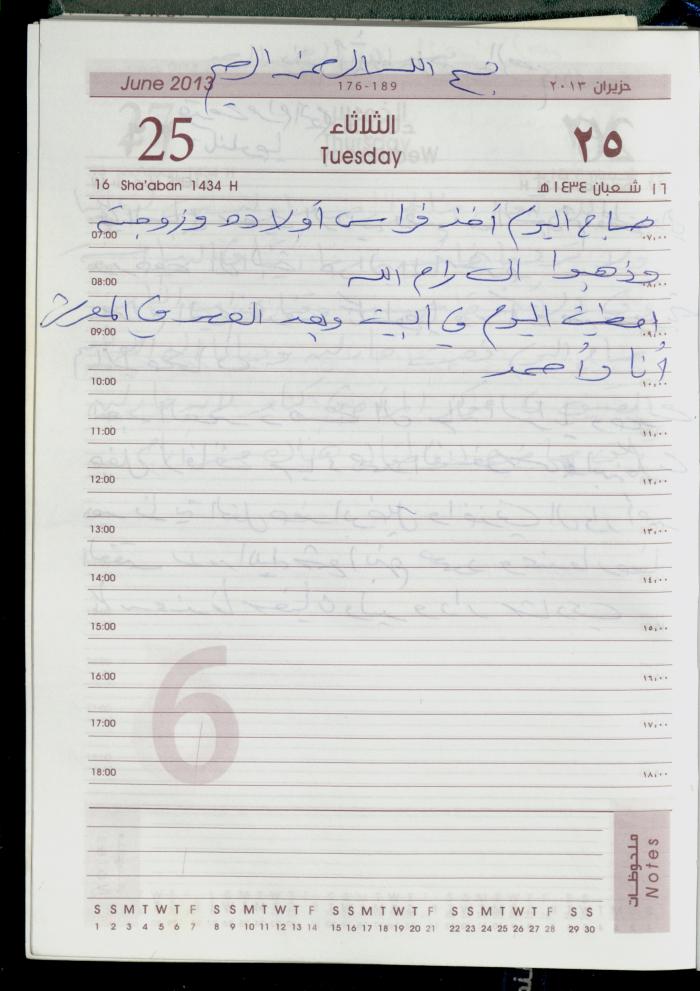 بسم الله الرحمن الرحيم
June 2013 176-189 حزيران ٢٠١٣
25 الثلاثاء ٢٥
Tuesday
16 Sha'aban 1434 H ١٦ شعبان ١٤٣٤ هـ
صباح اليوم أخذ فراس أولاده وزوجته
07:00 ٠٧,٠٠
وذهبوا الى رام الله
08:00 ٠٨,٠٠
امضيت اليوم في البيت وبعد العصر في المعرش
09:00 ٠٩,٠٠
أنا وأحمد
10:00 ١٠,٠٠
11:00 ١١,٠٠
12:00 ١٢,٠٠
13:00 ١٣,٠٠
14:00 ١٤,٠٠
15:00 ١٥,٠٠
16:00 ١٦,٠٠
17:00 ١٧,٠٠
18:00 ١٨,٠٠
6
ملحوظات
Notes
S S M T W T F S S M T W T F S S M T W T F S S M T W T F S S
1 2 3 4 5 6 7 8 9 10 11 12 13 14 15 16 17 18 19 20 21 22 23 24 25 26 27 28 29 30